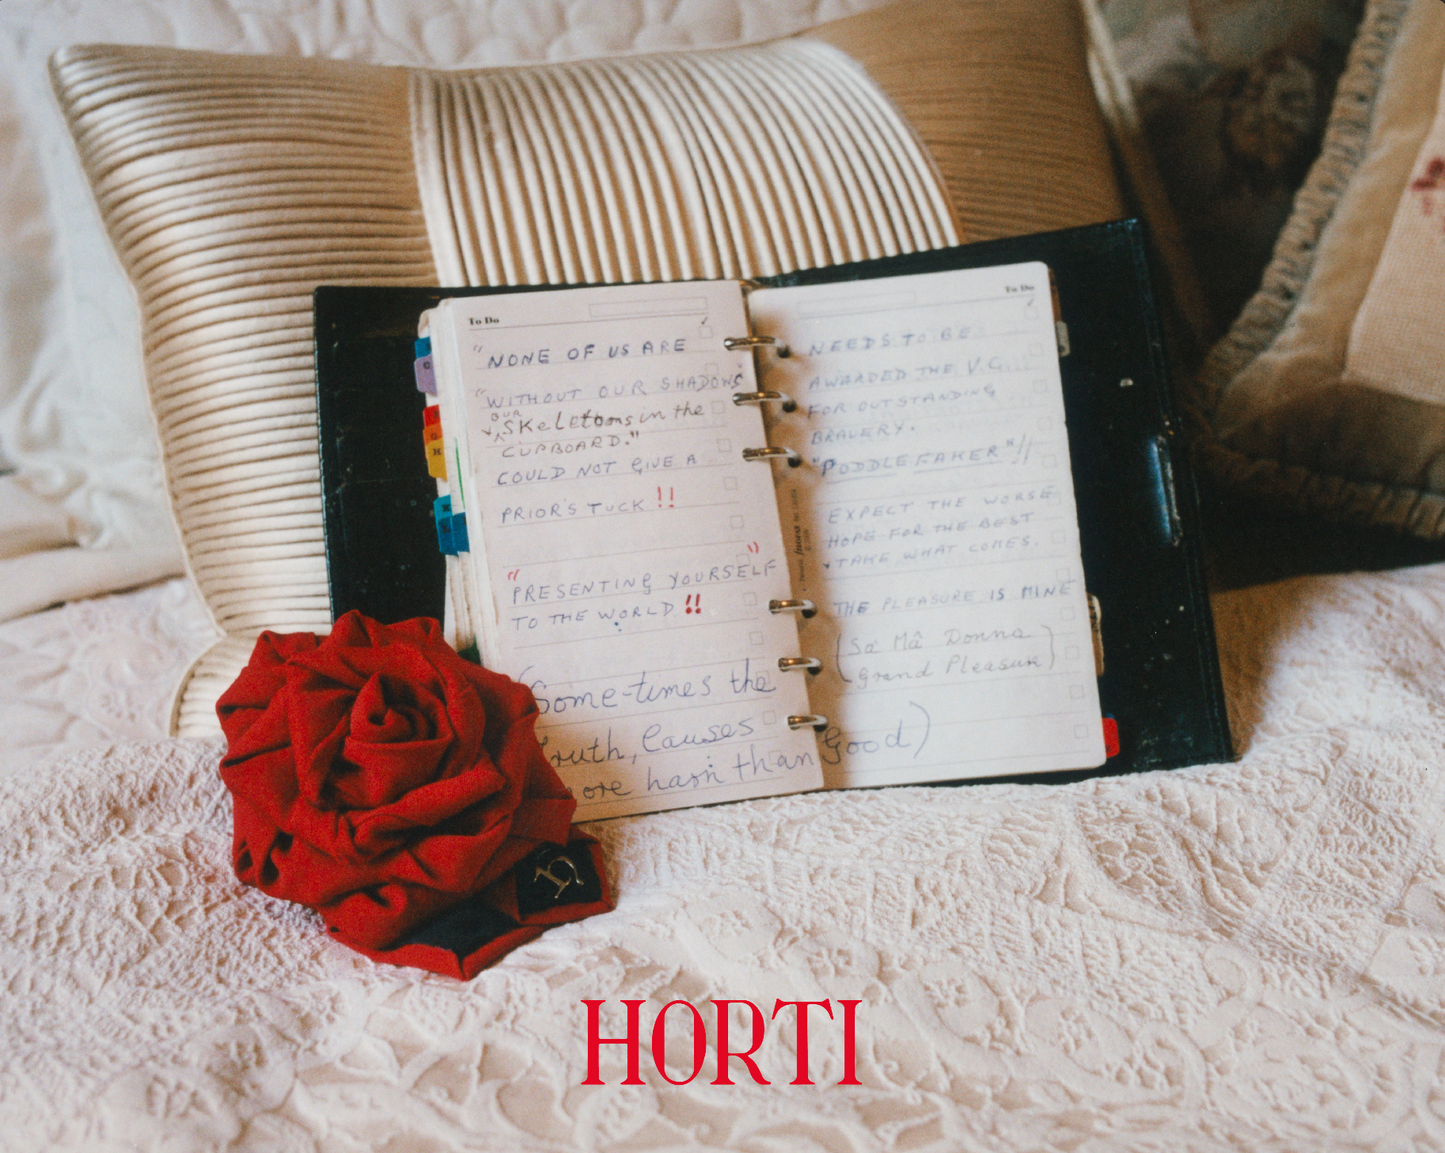 To Do
"NONE OF US ARE
"WITHOUT OUR SHADOWS
OUR
SKeletons in the
CUPBOARD."
COULD NOT GIVE A
PRIOR'S TUCK !!
"PRESENTING YOURSELF"
TO THE WORLD !!
(Some-times the
truth, Causes
more harm than
To Do
NEEDS TO BE
AWARDED THE V.C.
FOR OUTSTANDING
BRAVERY.
"PODDLE FAKER"!!
EXPECT THE WORSE
HOPE FOR THE BEST
TAKE WHAT COMES.
THE PLEASURE IS MINE
(Sa Mâ Donna
Grand Pleasure)
Good)
filofax
h
HORTI